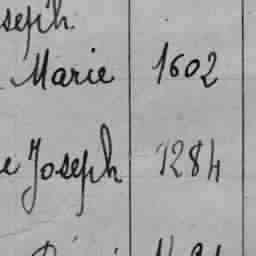 seph.
Marie 1602
e Joseph 1284